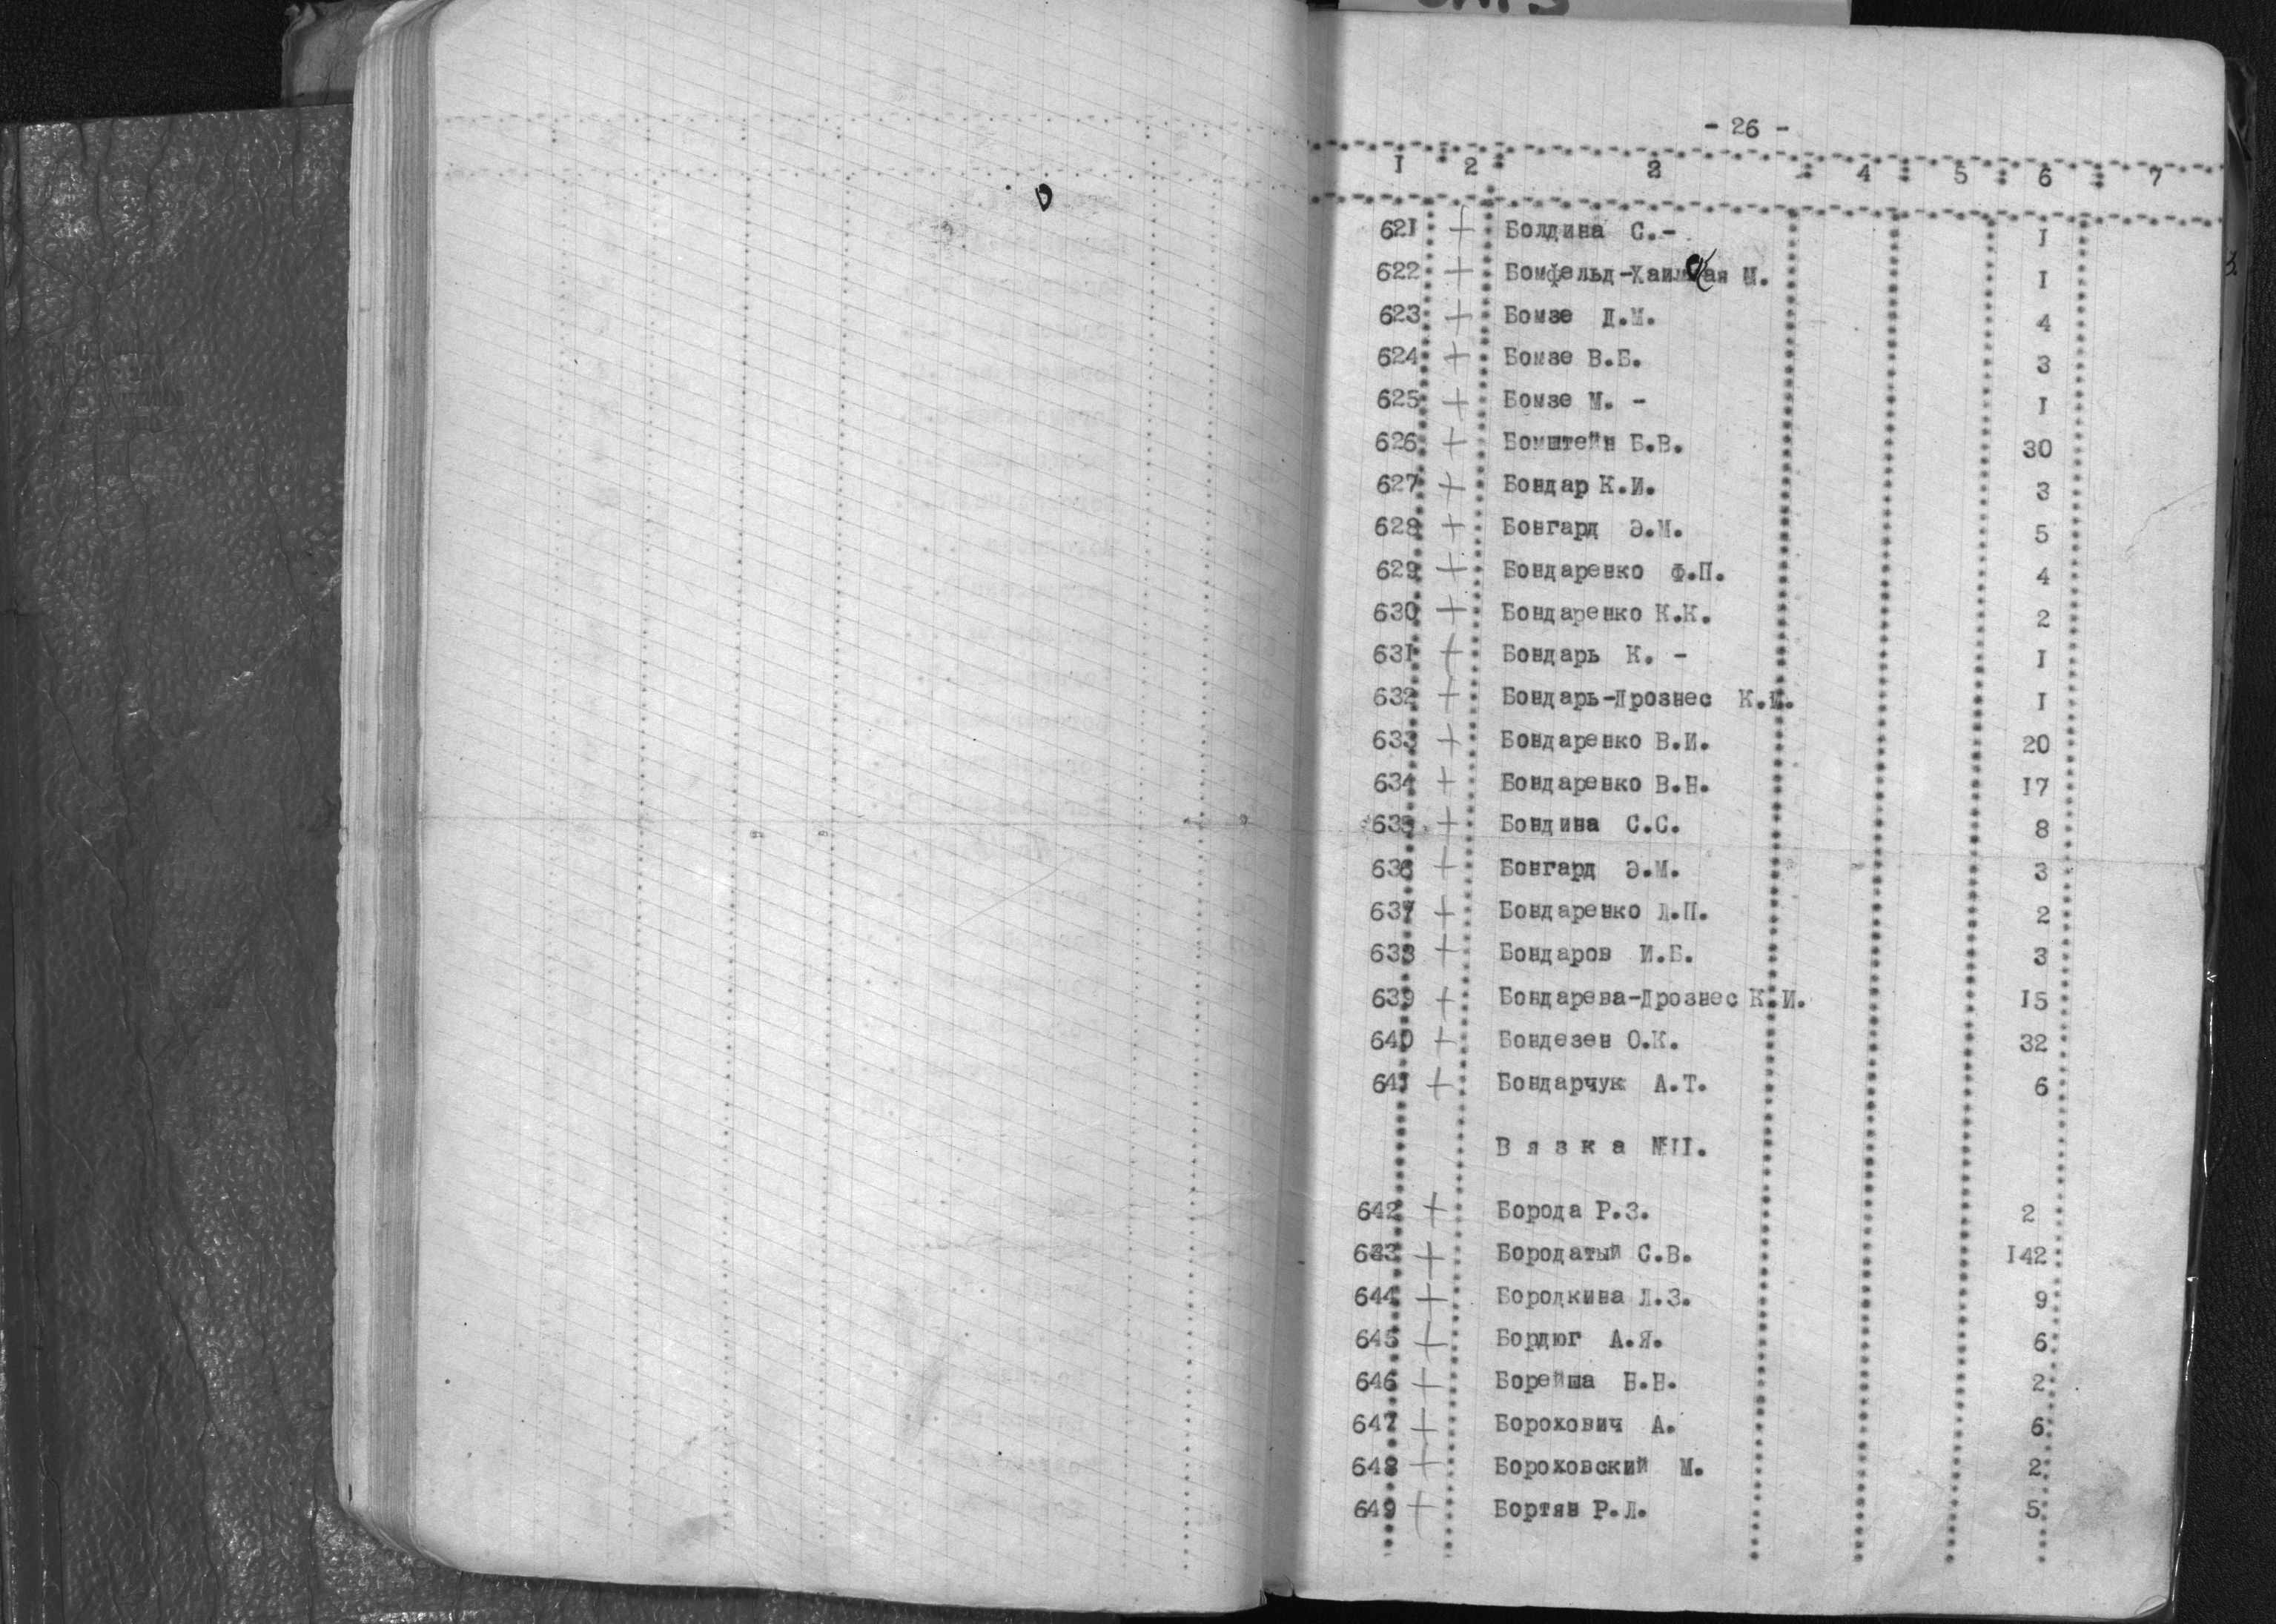 - 26 -
1 2 3 4 5 6 7
621 + Болдина С.- 1
622 + Бомфельд-Хаимская М. 1
623 + Бомзе Д.М. 4
624 + Бомзе В.Б. 3
625 + Бомзе М. - 1
626 + Бомштейн Б.В. 30
627 + Бондар К.И. 3
628 + Бонгард Э.М. 5
629 + Бондаренко Ф.П. 4
630 + Бондаренко К.К. 2
631 + Бондарь К. - 1
632 + Бондарь-Дрознес К.И. 1
633 + Бондаренко В.И. 20
634 + Бондаренко В.Н. 17
635 + Бондина С.С. 8
636 + Бонгард Э.М. 3
637 + Бондаренко Л.П. 2
638 + Бондаров И.Б. 3
639 + Бондарева-Дрознес К.И. 15
640 + Бондезен О.К. 32
641 + Бондарчук А.Т. 6
Вязка №11.
642 + Борода Р.З. 2
643 + Бородатый С.В. 142
644 + Бородкина Л.З. 9
645 + Бордюг А.Я. 6
646 + Борейша Н.Н. 2
647 + Борохович А. 6
648 + Бороховский М. 2
649 + Бортян Р.Л. 5